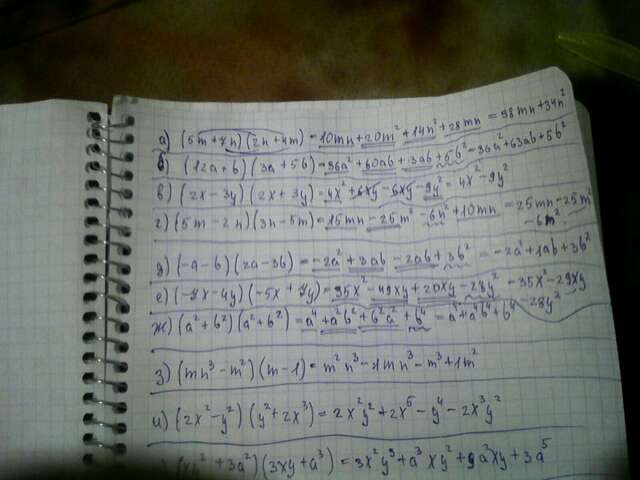 а) (5m+7n)(2n+4m)=10mn+20m²+14n²+28mn=98mn+34n²
б) (12a+b)(3a+5b)=36a²+60ab+3ab+5b²=36a²+63ab+5b²
в) (2x-3y)(2x+3y)=4x²+6xy-6xy-9y²=4x²-9y²
г) (5m-2n)(3n-5m)=15mn-25m²-6n²+10mn=25mn-25m²
-6n²
д) (-a-b)(2a-3b)=-2a²+3ab-2ab+3b²=-2a²+1ab+3b²
е) (-7x-4y)(-5x+7y)=35x²-49xy+20xy-28y²=35x²-29xy
-28y²
ж) (a²+b²)(a²+b²)=a⁴+a²b²+b²a²+b⁴=a⁴+a⁴b⁴+b⁴
з) (mn³-m²)(m-1)=m²n³-1mn³-m³+1m²
и) (2x²-y²)(y²+2x³)=2x²y²+2x⁵-y⁴-2x³y²
(xy²+3a²)(3xy+a³)=3x²y³+a³xy²+9a²xy+3a⁵